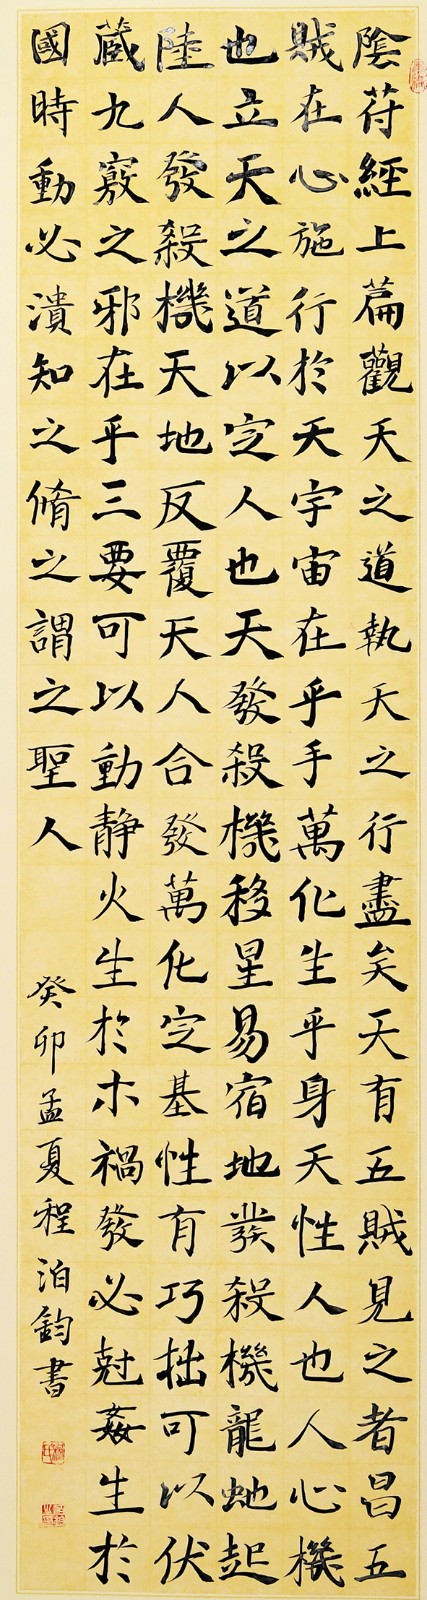 陰苻經上篇觀天之道執天之行盡矣天有五賊見之者昌五
賊在心施行於天宇宙在乎手萬化生乎身天性人也人心機
也立天之道以定人也天發殺機移星易宿地發殺機龍虵起
陸人發殺機天地反覆天人合發萬化定基性有巧拙可以伏
藏九竅之邪在乎三要可以動静火生於木禍發必尅姦生於
國時動必潰知之脩之謂之聖人
癸卯孟夏程泊鈞書